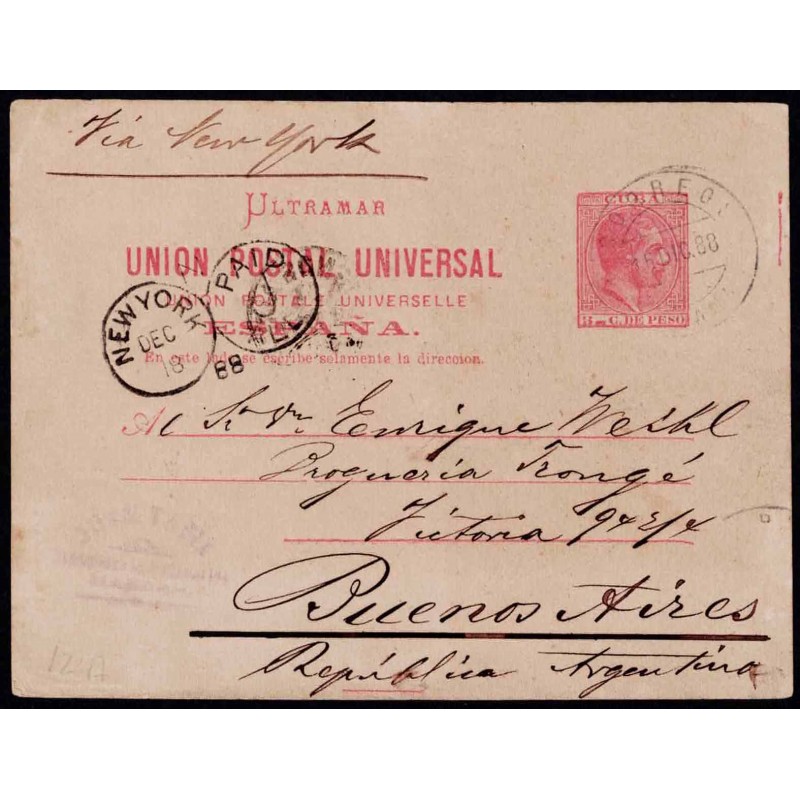 Viá New York
ULTRAMAR
CUBA
CORREO
UNION POSTAL UNIVERSAL
16 DIC. 88
UNION POSTALE UNIVERSELLE
3 C. DE PESO
ESPAÑA.
PAID
NEW YORK
DEC
18
88
En este lado se escribe solamente la direccion.
Al Sr. Dn. Enrique Weihl
Drogueria Trongé
Victoria 942/4
Buenos Aires
República Argentina
12 A